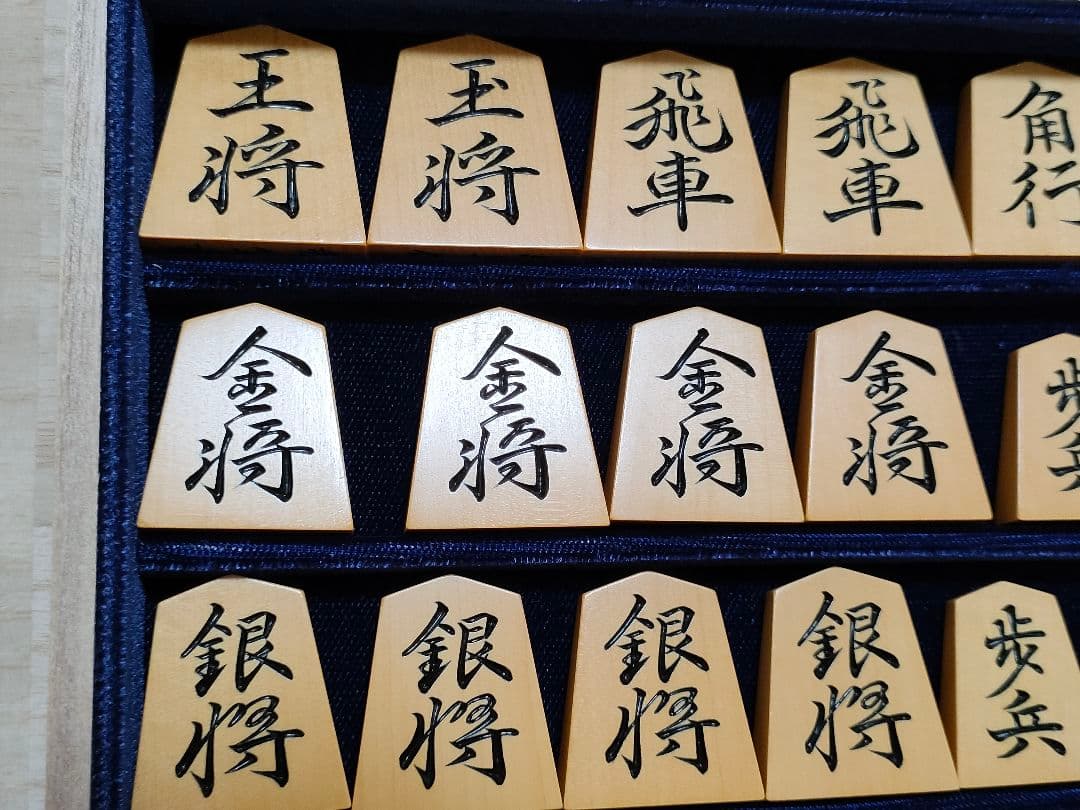 王将
玉将
飛車
飛車
角行
金将
金将
金将
金将
歩兵
銀将
銀将
銀将
銀将
歩兵